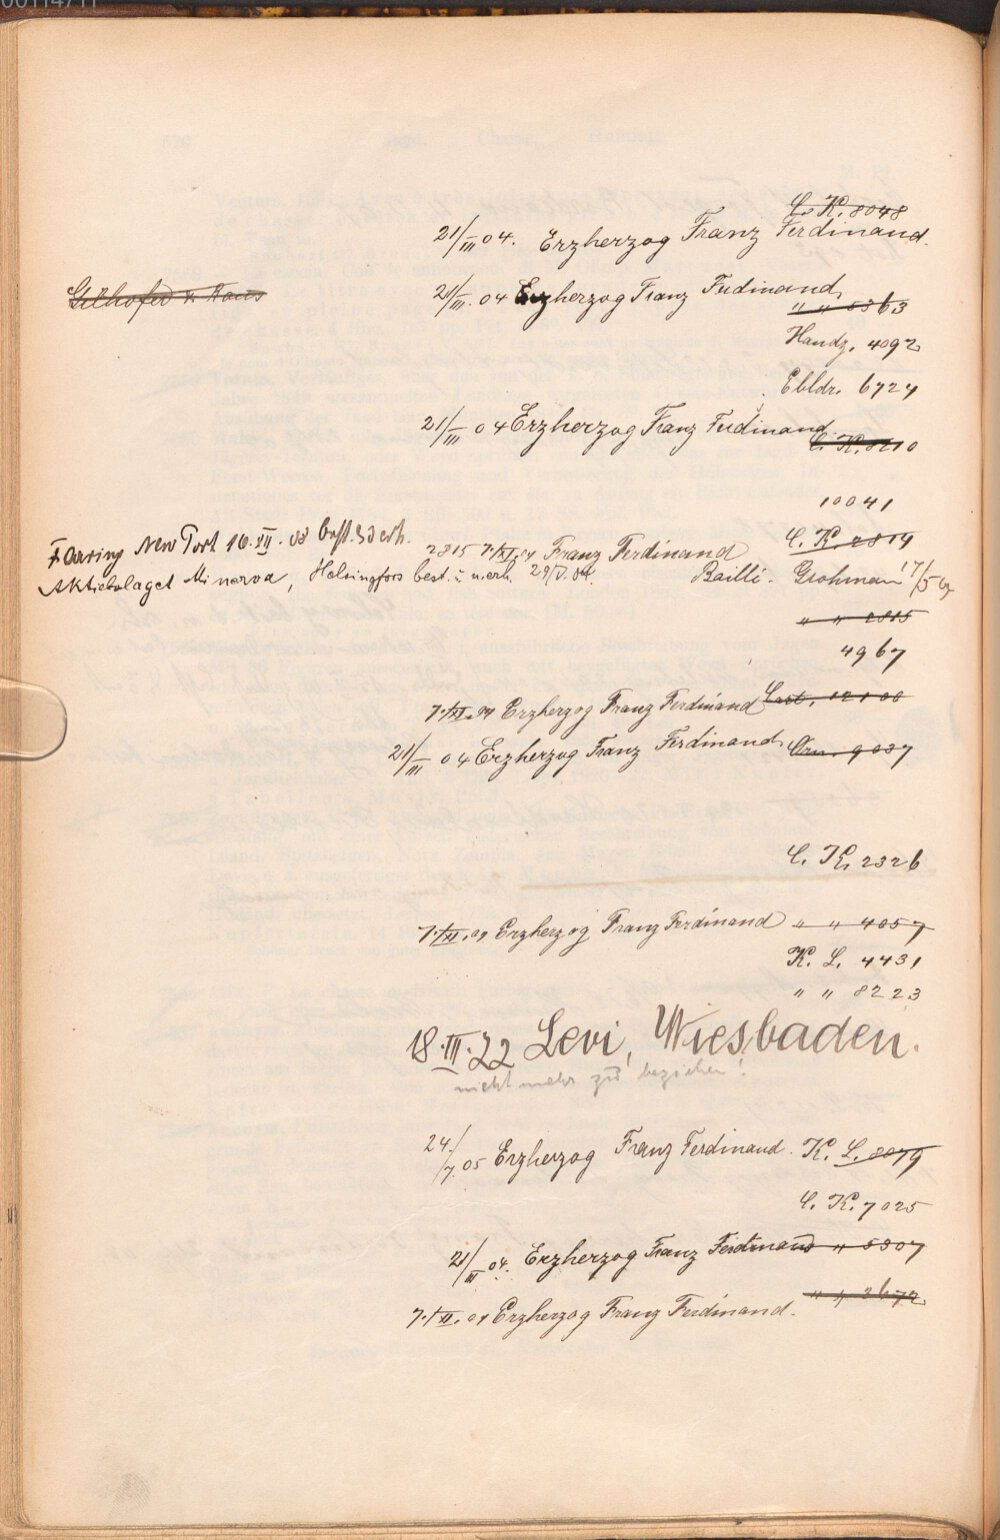 C. K. 8048
21/III 04. Erzherzog Franz Ferdinand.
Gilhofer & Rans
21/III. 04 Erzherzog Franz Ferdinand
" " 5363
Handz. 4092
Ebldr. 6724
21/III 04 Erzherzog Franz Ferdinand
C. K. 8210
10041
C. K. 2814
Farring New York 16.XII.03
2815 7./XI.04 Franz Ferdinand
Aktiebolaget Minerva, Helsingfors best. u. erh. 29/V.04.
Bailli. Grohman 17/5
" " 2815
4967
7./XI.04 Erzherzog Franz Ferdinand
21/III 04 Erzherzog Franz Ferdinand Orn. 9037
C. K. 2326
7./XI.04 Erzherzog Franz Ferdinand " " 4057
K. L. 4431
" " 8223
18.III.22 Levi, Wiesbaden.
nicht mehr zu beziehen!
24./7.05 Erzherzog Franz Ferdinand. K. L. 8079
C. K. 7025
21/III 04. Erzherzog Franz Ferdinand " 5807
" " 3672
7./XI.04 Erzherzog Franz Ferdinand.